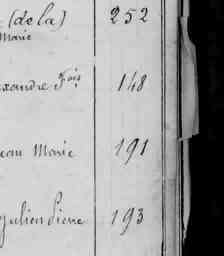 (de la) 252
Marie
exandre Fois 148
eau Marie 191
Julien Pierre 193